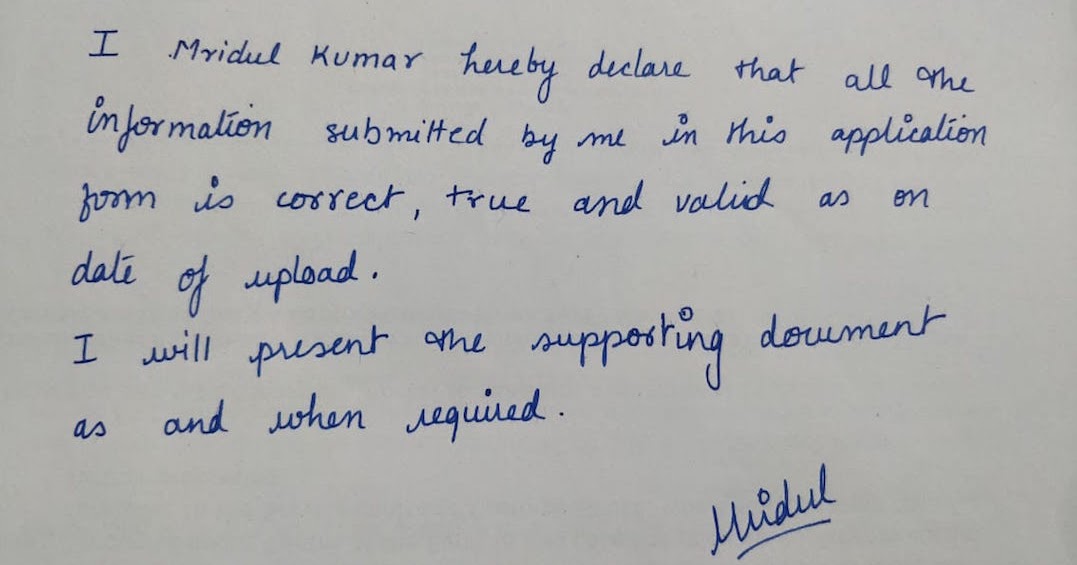 I Mridul Kumar hereby declare that all the
information submitted by me in this application
form is correct, true and valid as on
date of upload.
I will present the supporting document
as and when required.
Mridul